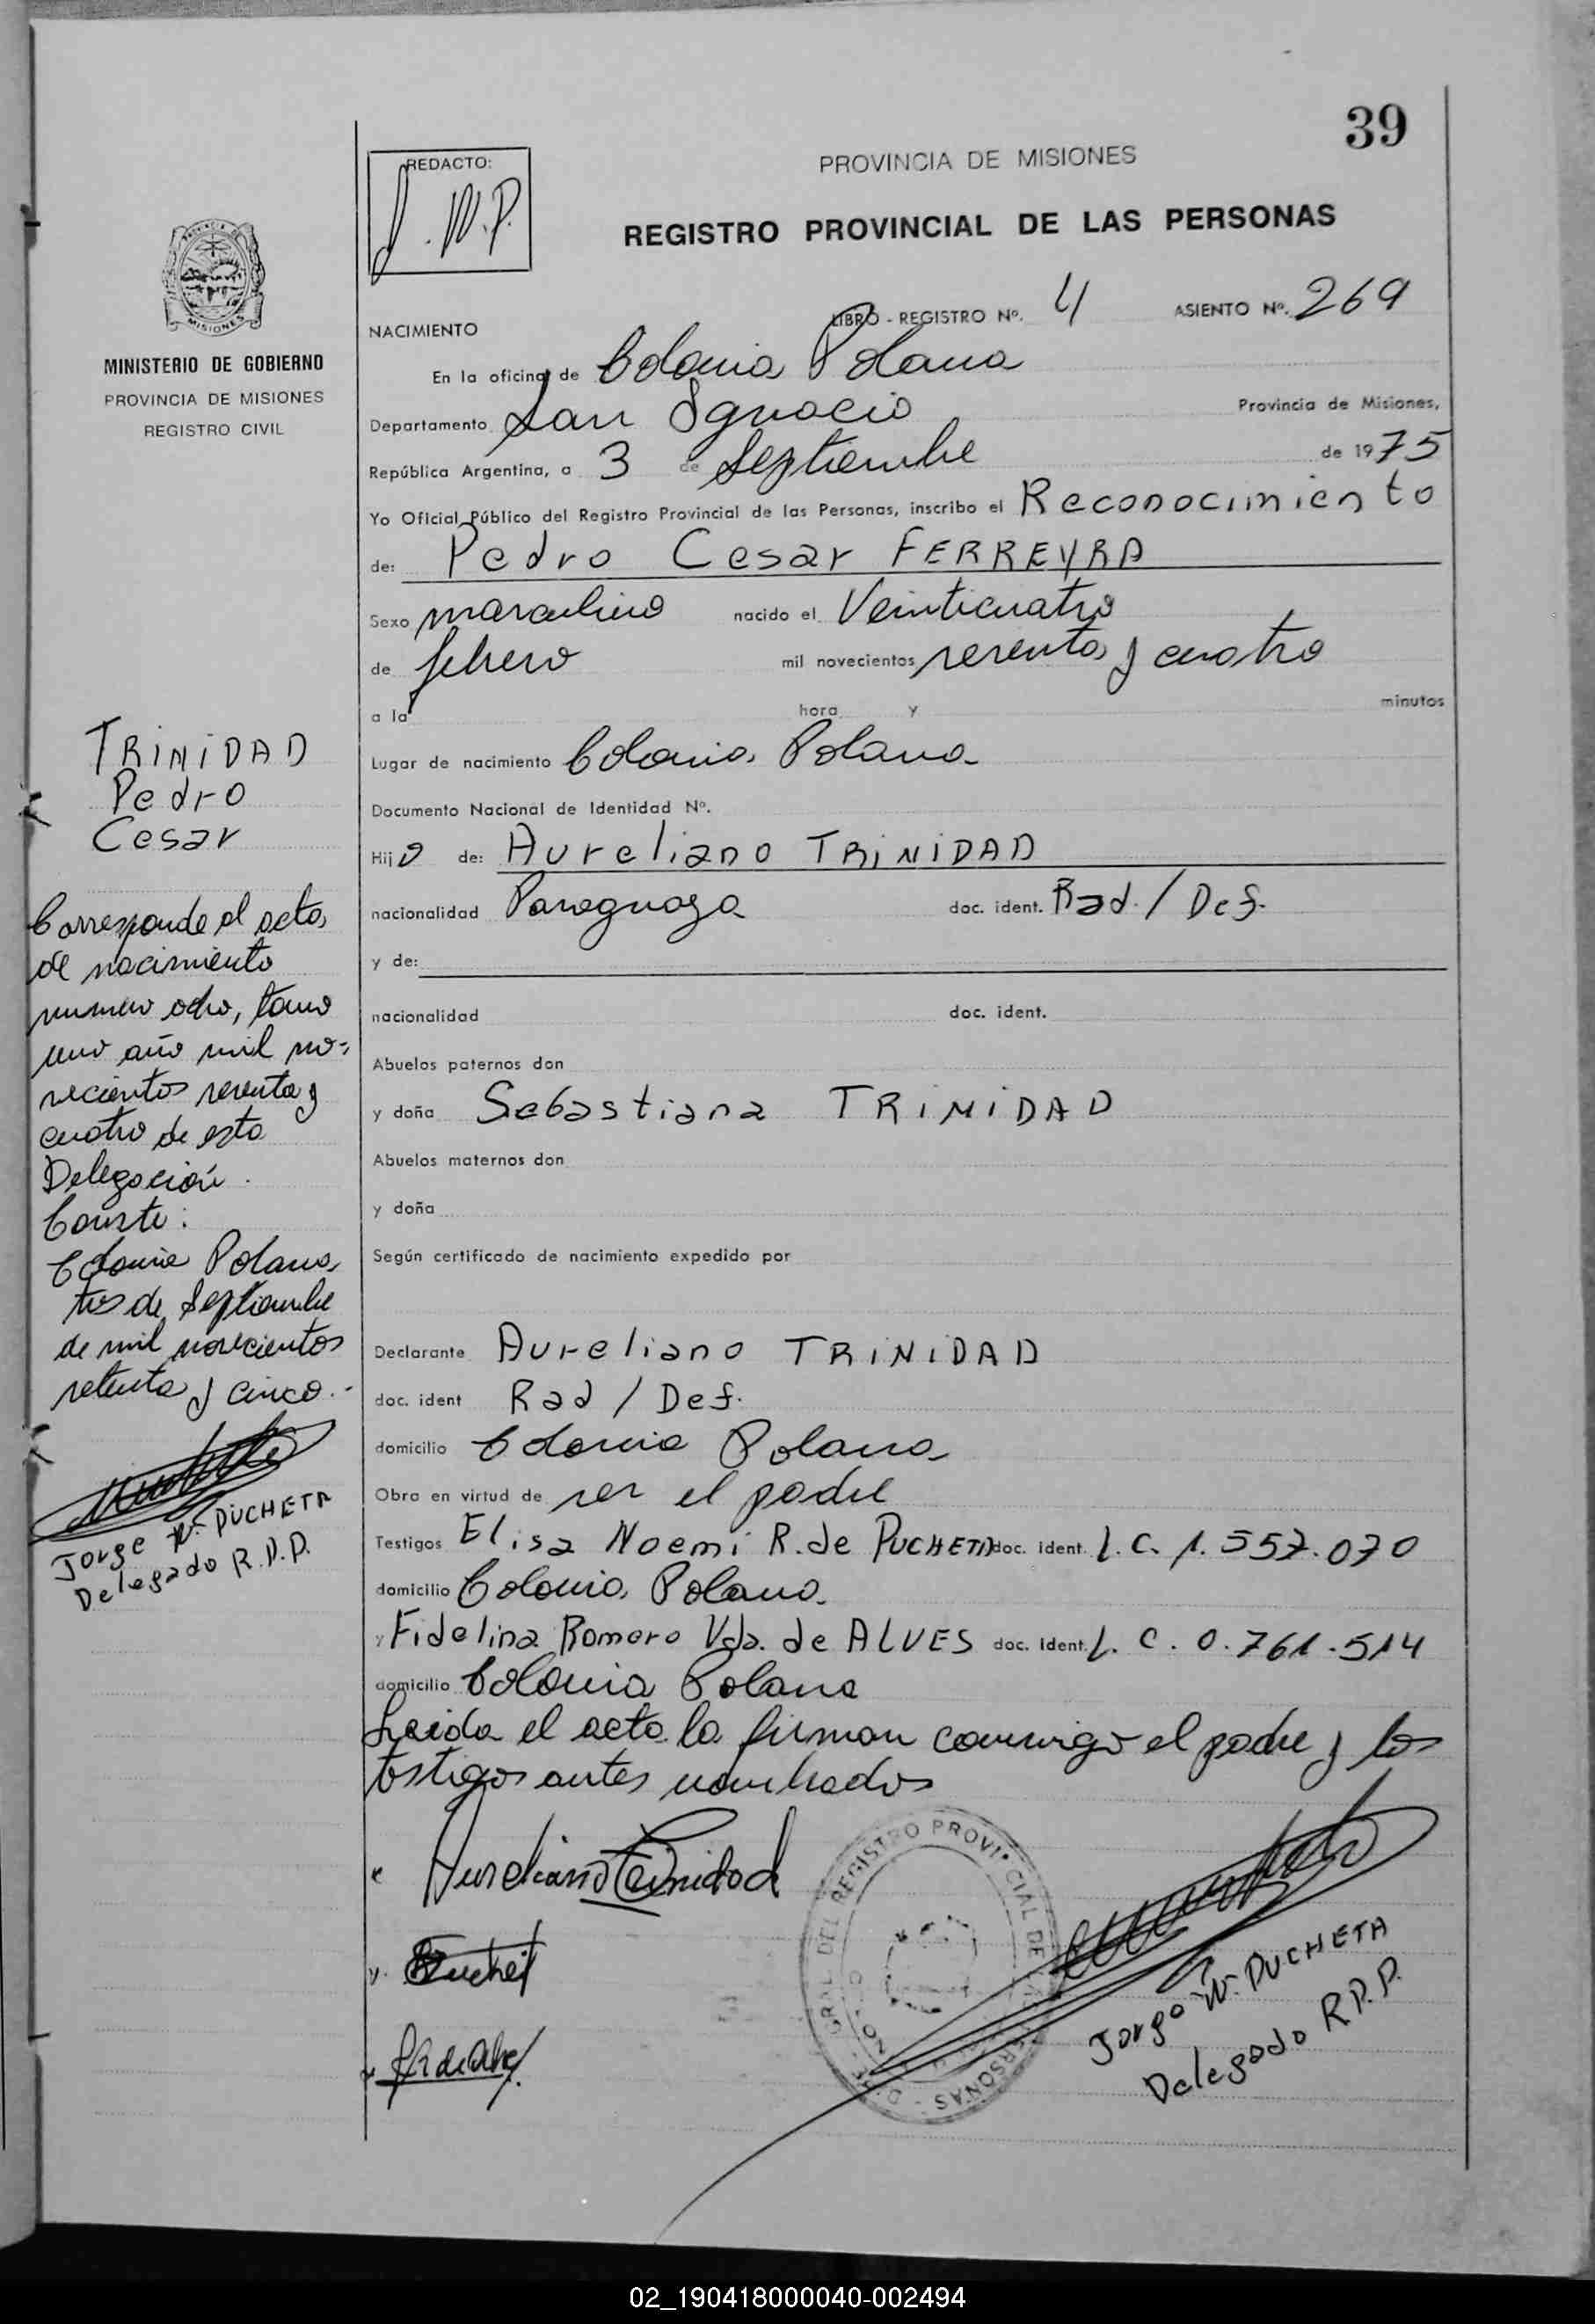 39
REDACTO:
J. W. P.
PROVINCIA DE MISIONES
REGISTRO PROVINCIAL DE LAS PERSONAS
MISIONES
MINISTERIO DE GOBIERNO
PROVINCIA DE MISIONES
REGISTRO CIVIL
TRINIDAD
Pedro
Cesar
Corresponde al acta
de nacimiento
numero ocho, tomo
uno año mil no-
vecientos sesenta y
cuatro de esta
Delegación.
Conste:
Colonia Polana,
tres de Septiembre
de mil novecientos
setenta y cinco.-
Jorge W. PUCHETA
Delegado R.P.P.
NACIMIENTO LIBRO - REGISTRO Nº. 4 ASIENTO Nº. 269
En la oficina de Colonia Polana
Departamento San Ignacio Provincia de Misiones,
República Argentina, a 3 de Septiembre de 1975
Yo Oficial Público del Registro Provincial de las Personas, inscribo el Reconocimiento
de: Pedro Cesar FERREYRA
Sexo masculino nacido el Veinticuatro
de febrero mil novecientos sesenta y cuatro
a la hora y minutos
Lugar de nacimiento Colonia Polana
Documento Nacional de Identidad Nº.
Hijo de: Aureliano TRINIDAD
nacionalidad Paraguaya doc. ident. Rad. / Def.
y de:
nacionalidad doc. ident.
Abuelos paternos don
y doña Sebastiana TRINIDAD
Abuelos maternos don
y doña
Según certificado de nacimiento expedido por
Declarante Aureliano TRINIDAD
doc. ident Rad / Def.
domicilio Colonia Polana
Obra en virtud de ser el padre
Testigos Elisa Noemi R. de PUCHETA doc. ident. L. C. 1.557.070
domicilio Colonia Polana
y Fidelina Romero Vda. de ALVES doc. ident. L. C. 0.761.514
domicilio Colonia Polana
Leida el acta la firman conmigo el padre y los
testigos antes nombrados
Aureliano Trinidad
DEL REGISTRO PROVINCIAL DE PERSONAS
Jorge W. PUCHETA
Delegado R.P.P.
02_190418000040-002494